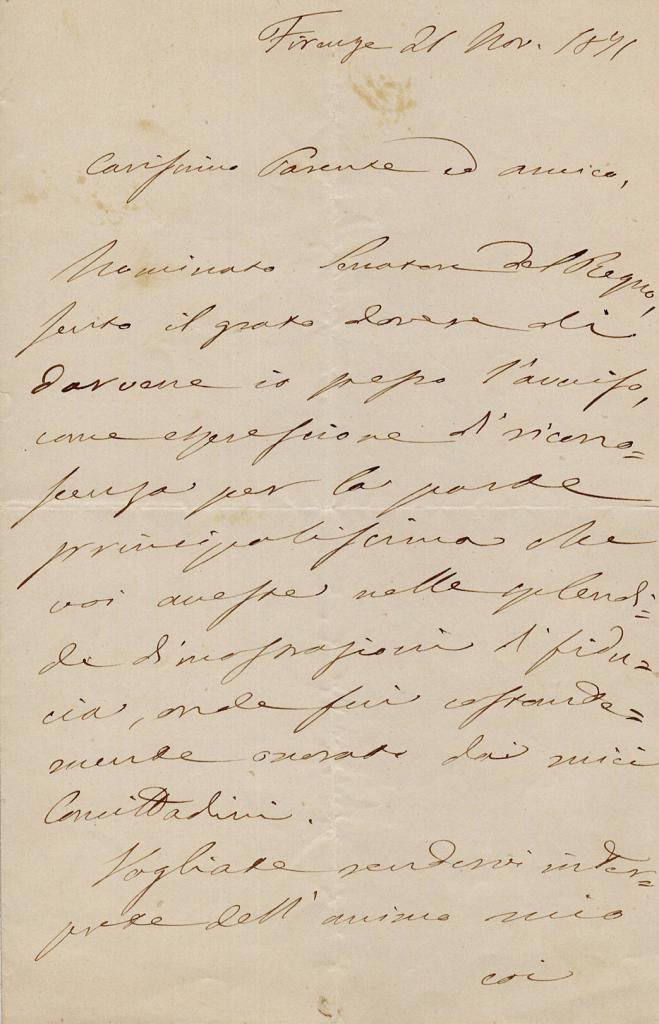 Firenze 21 Nov. 1871
Carissimo Parente ed amico,
Nominato Senatore del Regno,
sento il grato dovere di
darvene io stesso l'avviso,
come espressione di ricono=
scenza per la parte
principalissima che
voi aveste nelle splendi=
de dimostrazioni di fidu=
cia, onde fui costante=
mente onorato dai miei
Concittadini.
Vogliate rendervi inter=
prete dell'animo mio
coi